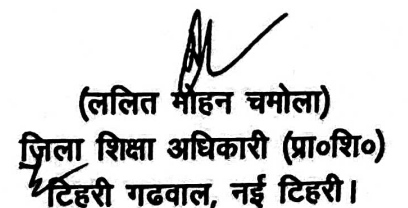 (ललित मोहन चमोला)
ज़िला शिक्षा अधिकारी (प्रा०शि०)
टिहरी गढवाल, नई टिहरी।